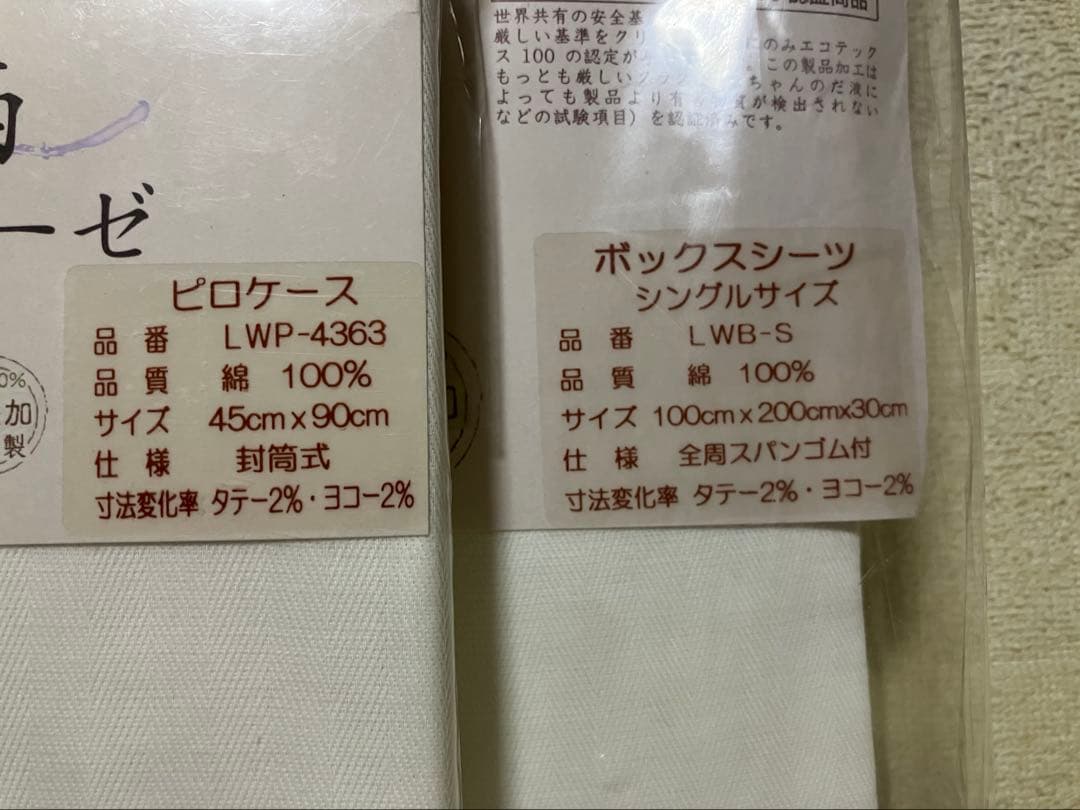 ーゼ
0%
加
製
ピロケース
品 番 LWP-4363
品 質 綿 100%
サイズ 45cm x 90cm
仕 様 封筒式
寸法変化率 タテー2%・ヨコー2%
世界共有の安全基
厳しい基準をクリ のみエコテック
ス 100 の認定が この製品加工は
もっとも厳しい ちゃんのだ液に
よっても製品より有 が検出されない
などの試験項目）を認証済みです。
ボックスシーツ
シングルサイズ
品 番 LWB-S
品 質 綿 100%
サイズ 100cm x 200cmx30cm
仕 様 全周スパンゴム付
寸法変化率 タテー2%・ヨコー2%